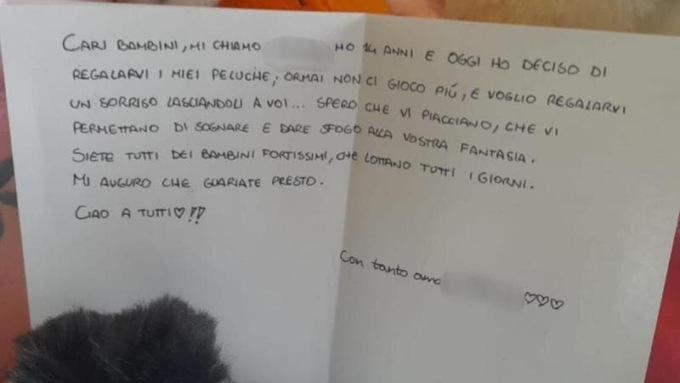 CARI BAMBINI, MI CHIAMO HO 14 ANNI E OGGI HO DECISO DI
REGALARVI I MIEI PELUCHE; ORMAI NON CI GIOCO PIÚ, E VOGLIO REGALARVI
UN SORRISO LASCIANDOLI A VOI... SPERO CHE VI PIACCIANO, CHE VI
PERMETTANO DI SOGNARE E DARE SFOGO ALLA VOSTRA FANTASIA.
SIETE TUTTI DEI BAMBINI FORTISSIMI, CHE LOTTANO TUTTI I GIORNI.
MI AUGURO CHE GUARIATE PRESTO.
CIAO A TUTTI♡!!
Con tanto amo ♡♡♡